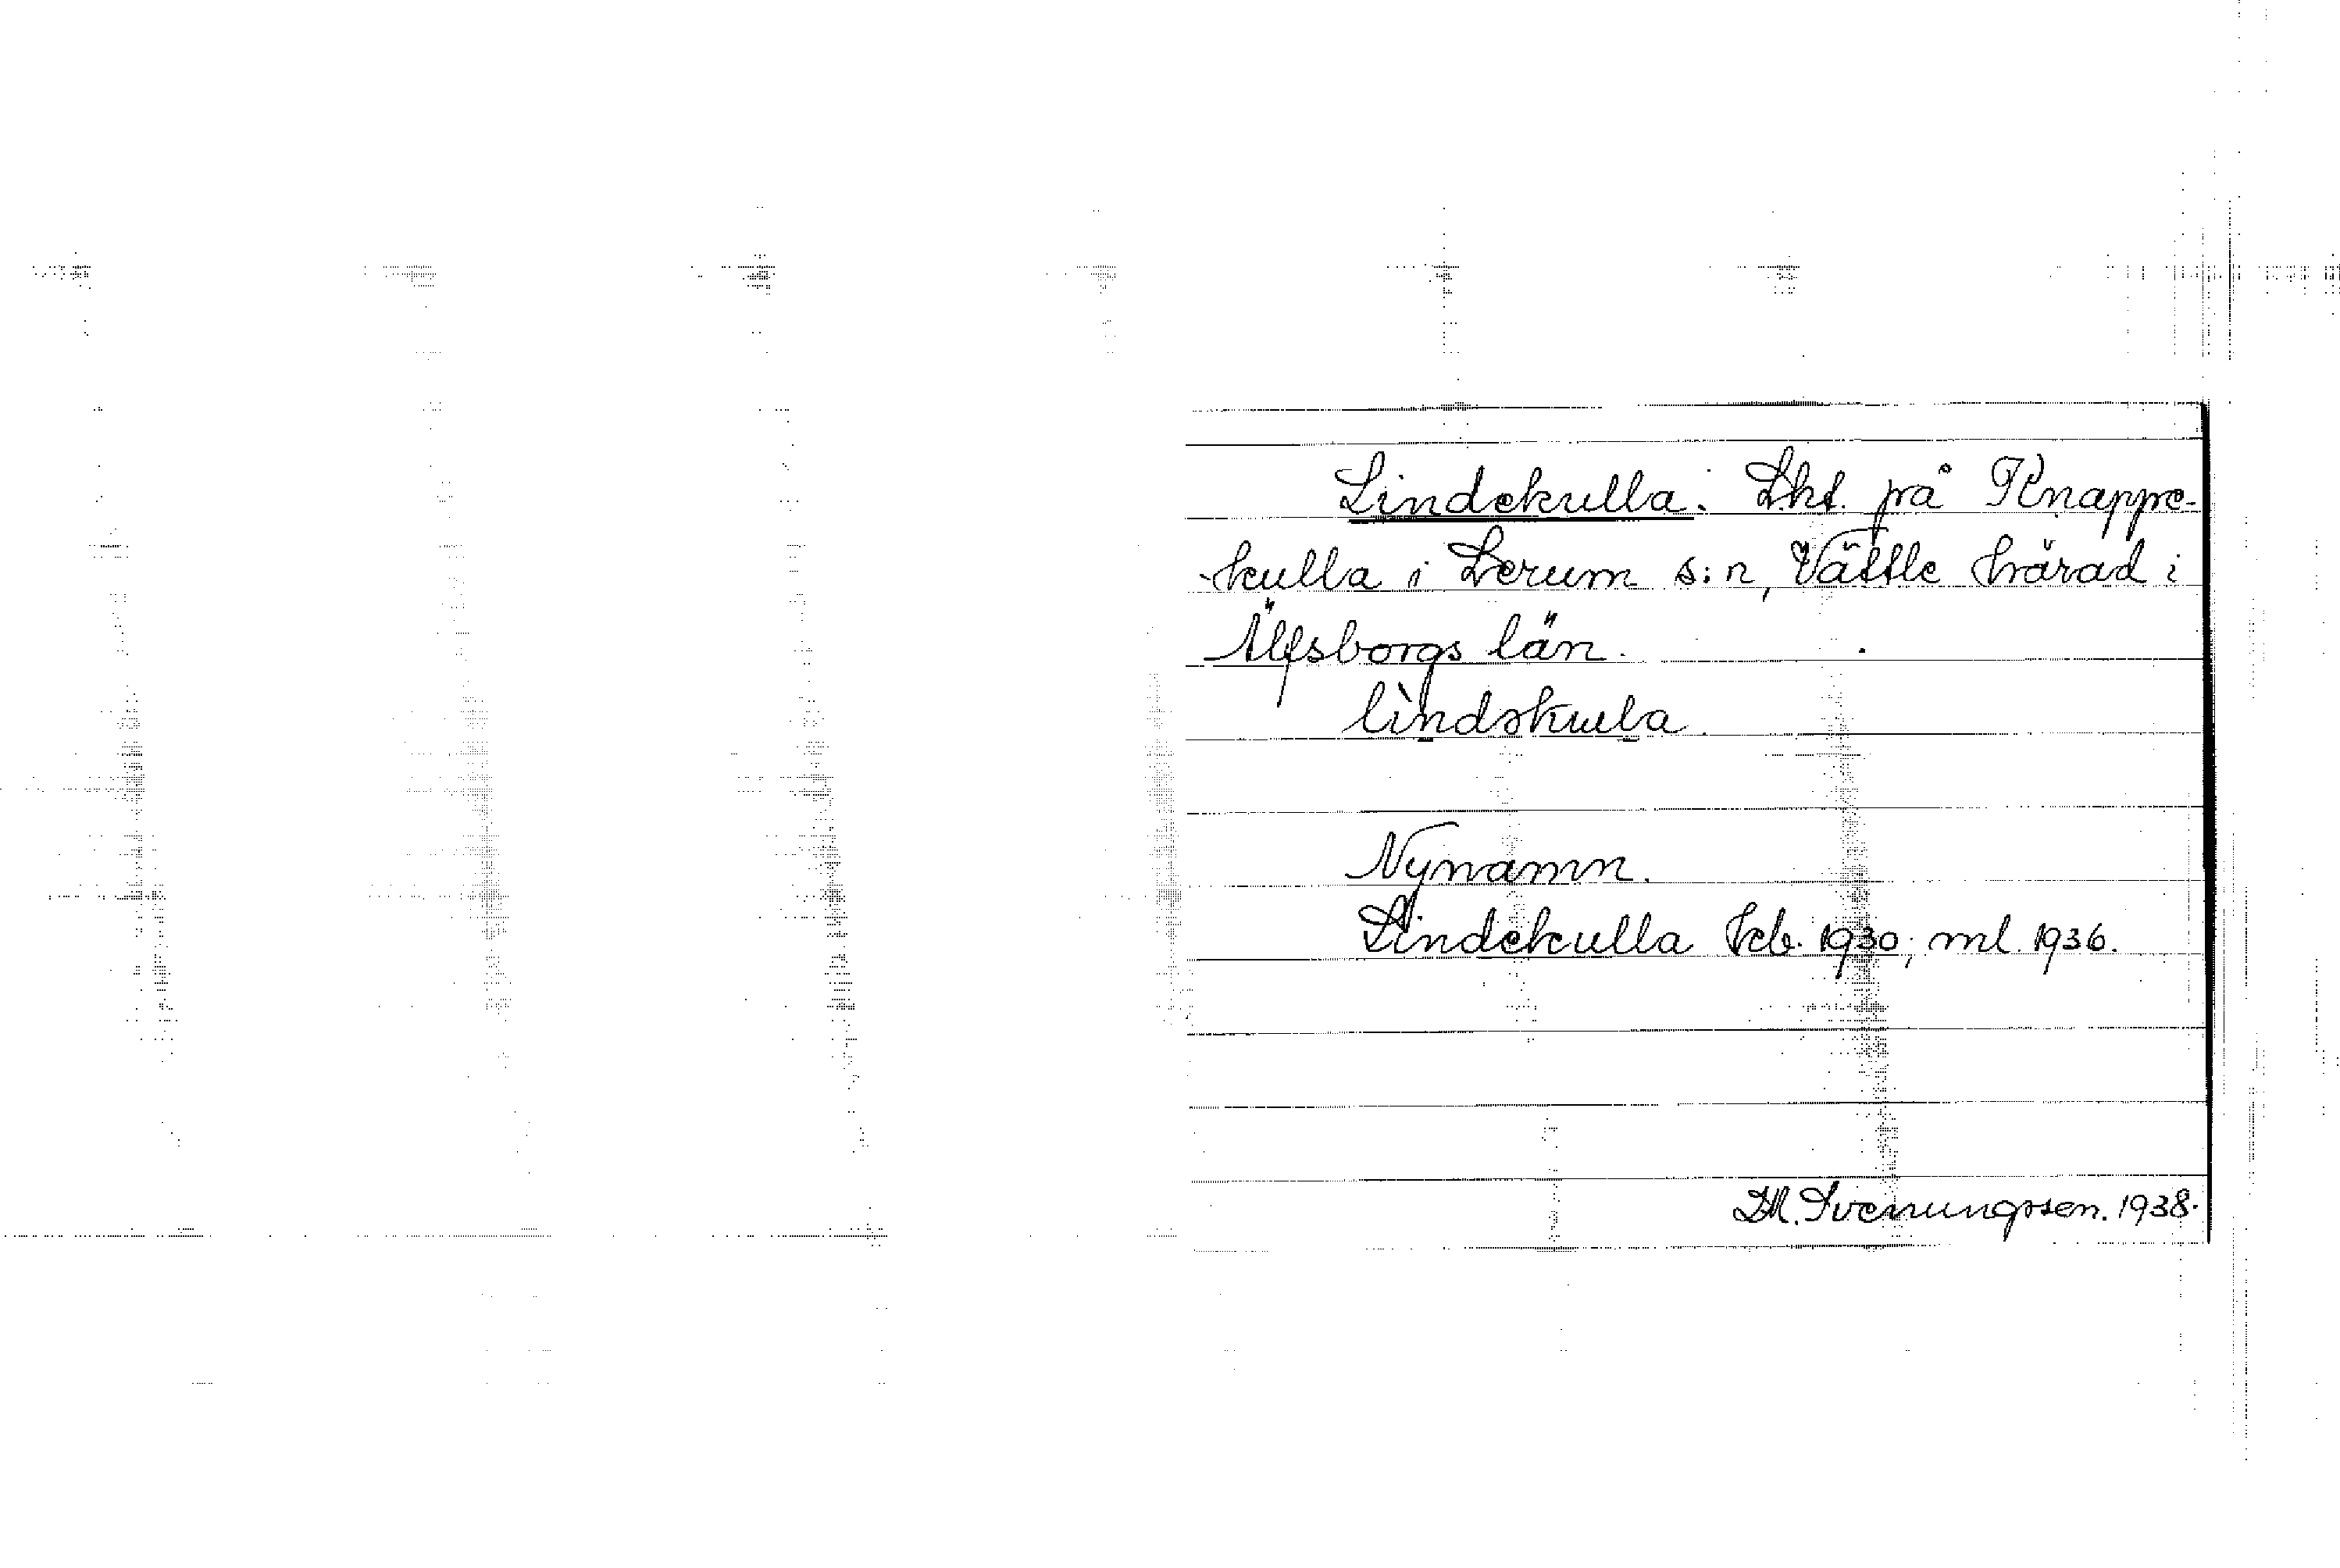 Lindekulla. Lht. på Knappe-
kulla i Lerum s:n, Vättle härad i
Älfsborgs län.
lìndəkula
Nynamn.
Lindekulla kb. 1930; ml. 1936.
Svenungsson. 1938.